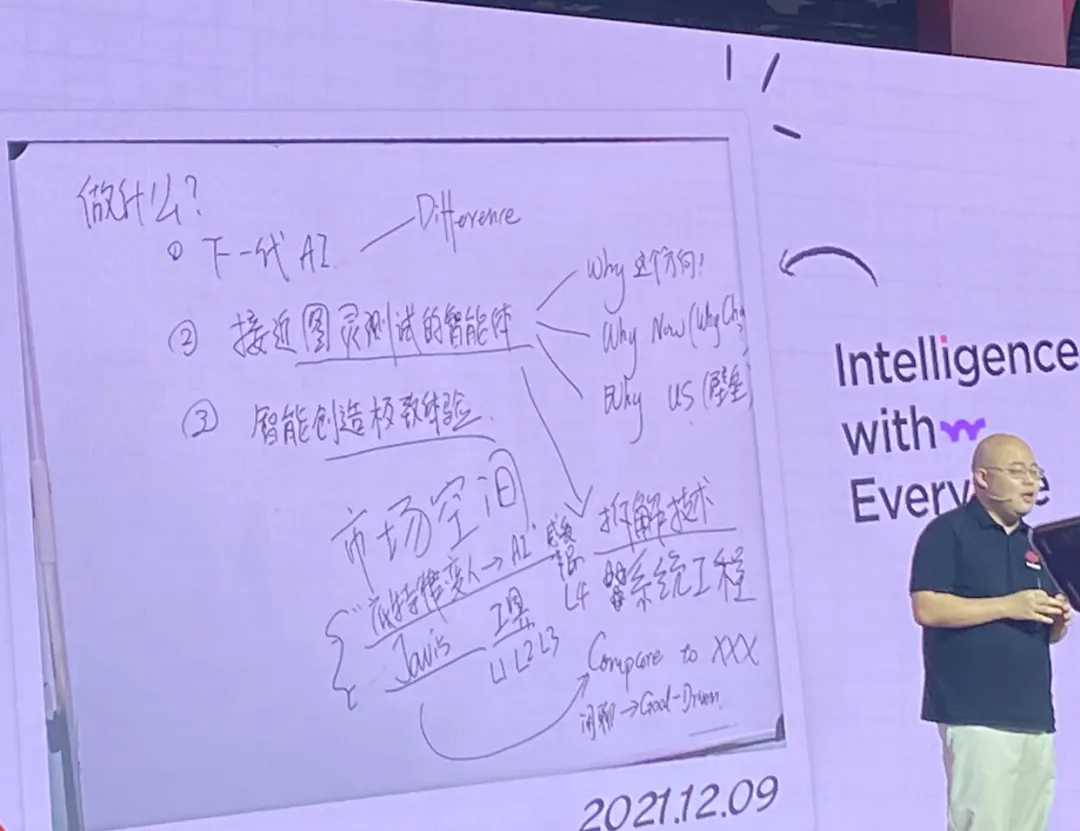 做什么?
① 下一代 AI
Difference
② 接近图灵测试的智能体
Why 这个方向!
Why Now (Why
Why US (壁垒
③ 智能创造极致体验
市场空间
底特律变人→AI
感知
L4
拆解技术
系统工程
Javis
工具
L1 L2 L3
Compare to XXX
闲聊→Goal-Driven
2021.12.09
Intelligence
with
Every